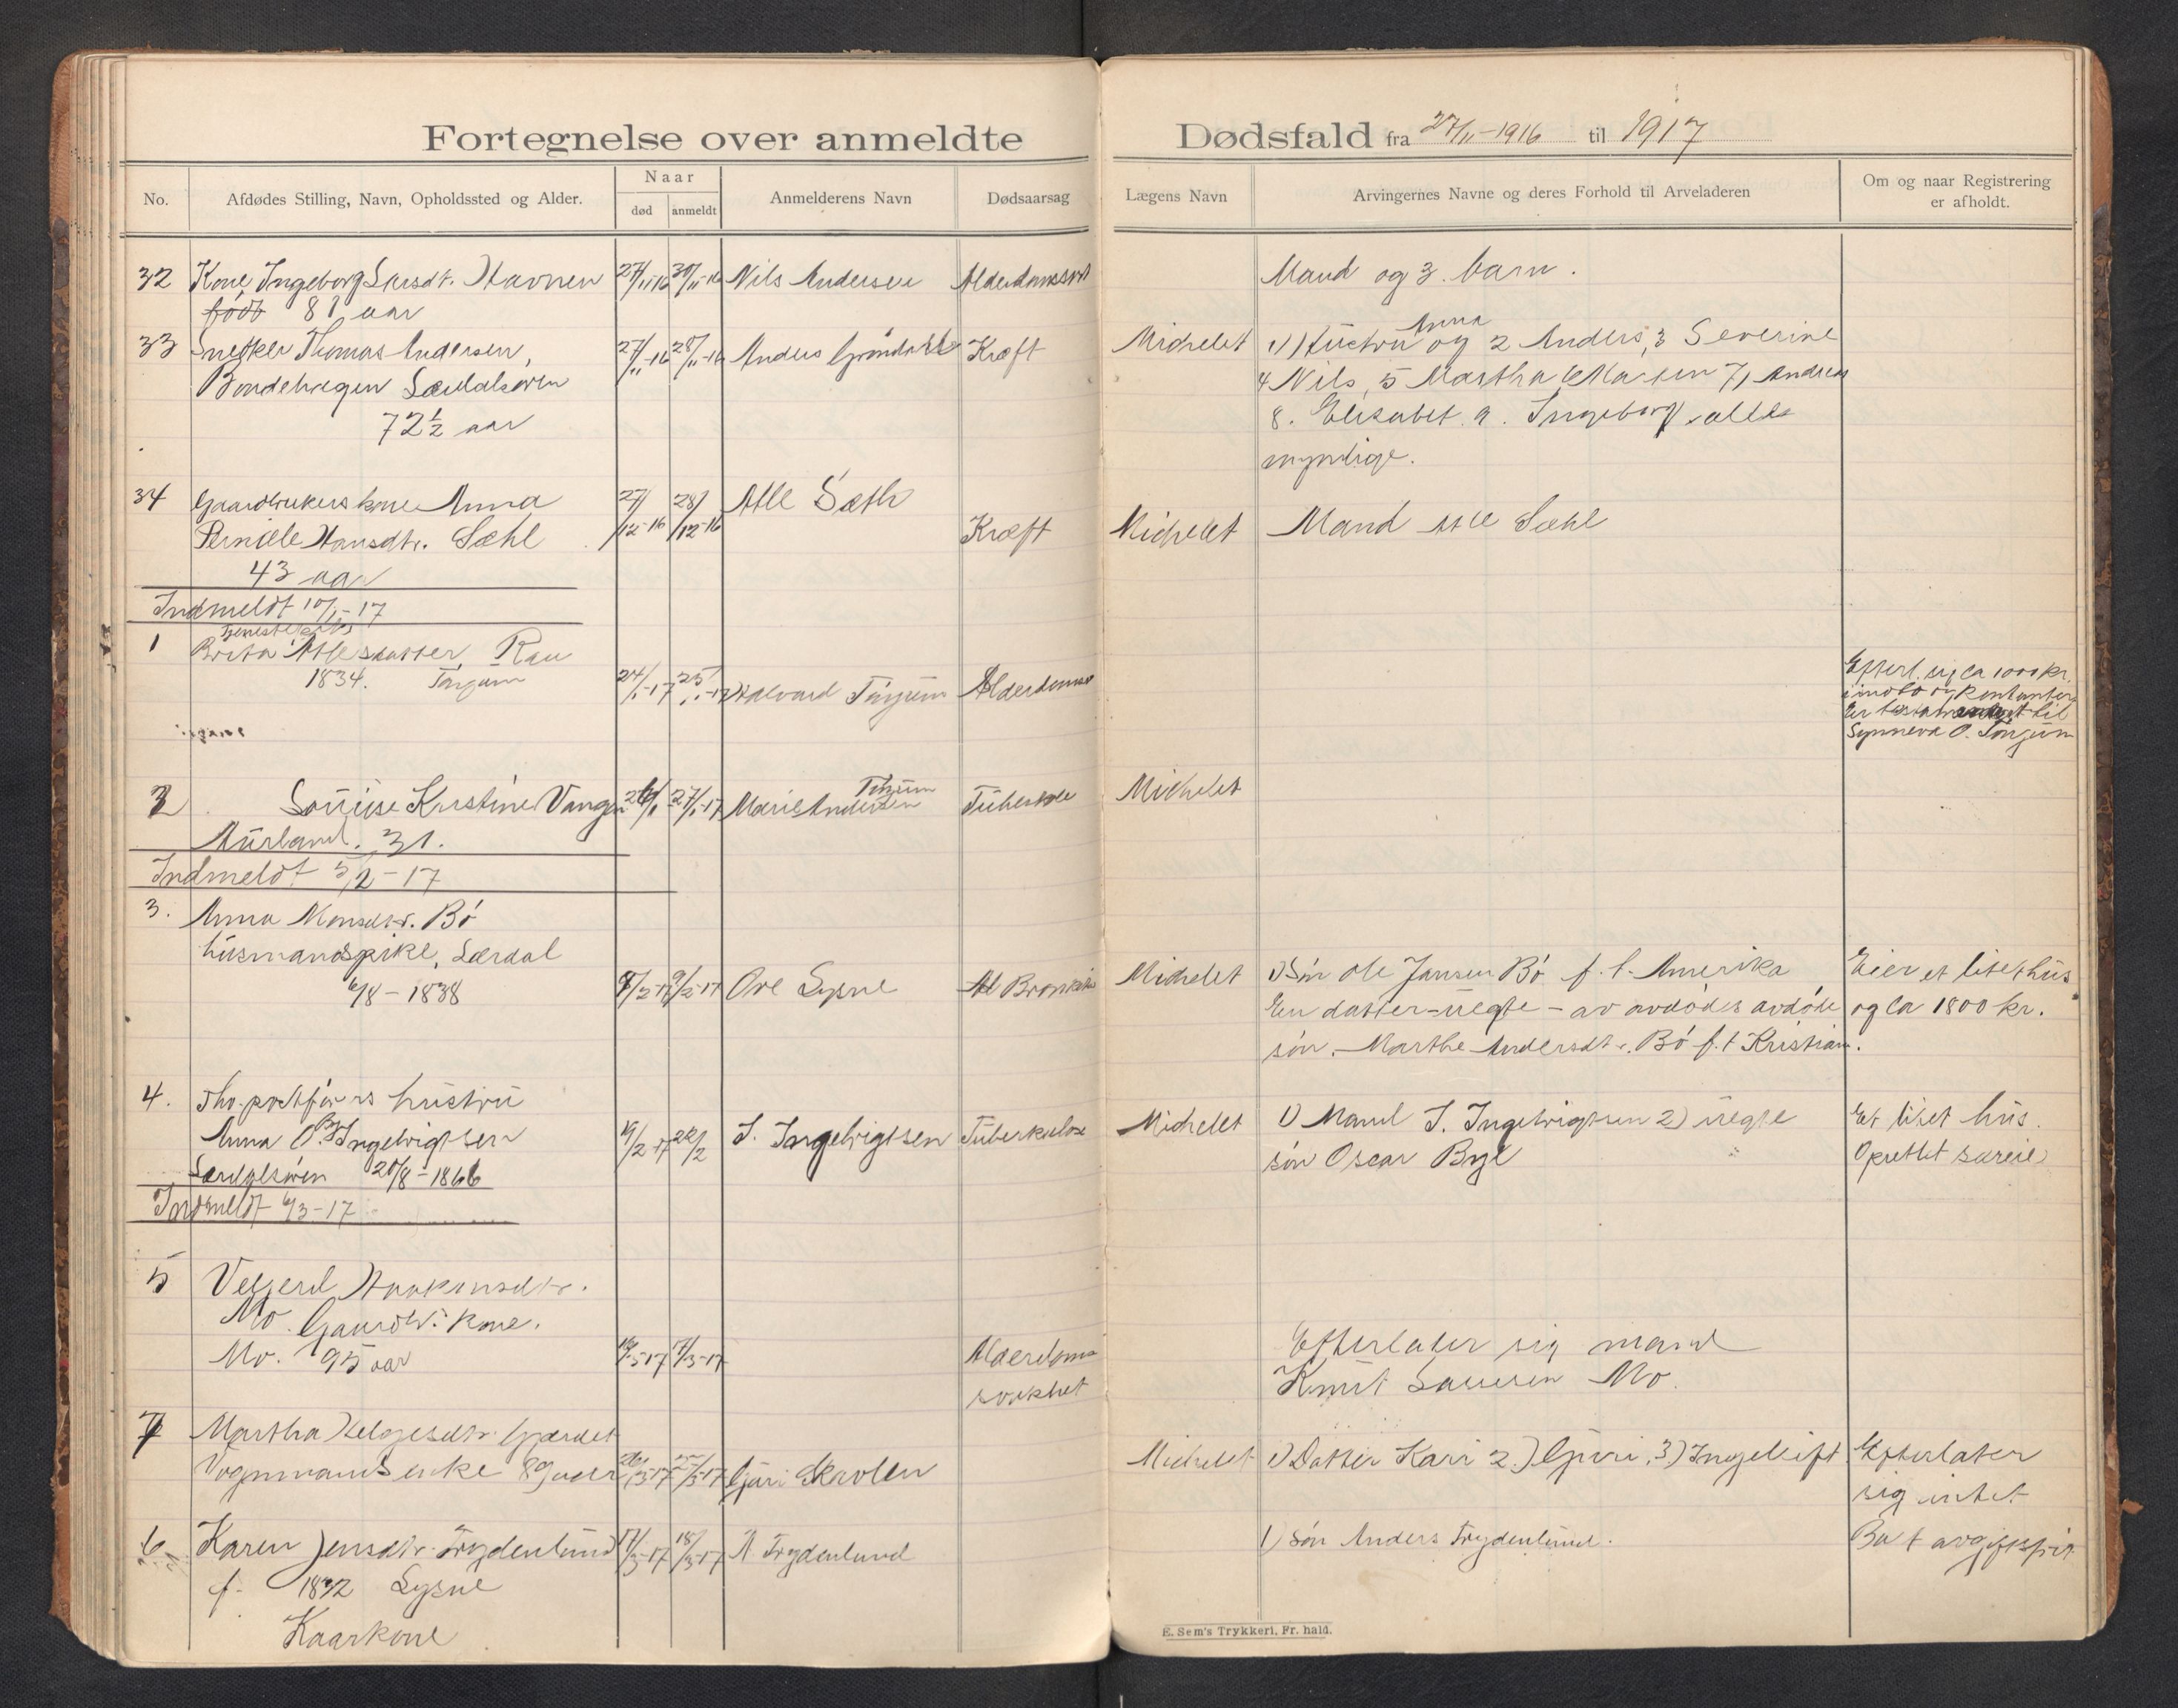 Fortegnelse over anmeldte Dødsfald fra 27/11-1916 til 1917
No. Afdødes Stilling, Navn, Opholdssted og Alder. Naar død anmeldt Anmelderens Navn Dødsaarsag Lægens Navn Arvingernes Navne og deres Forhold til Arveladeren Om og naar Registrering er afholdt.
32 Kone Ingeborg Larsdt. Havnen 27/11-16 30/11-16 Nils Andersen Mand og 3 barn.
født 81 aar
33 Snekker Thomas Andersen, 27/11-16 28/11-16 Anders Kræft Michelet 1) Hustru Anna og 2 Anders, 3 Severine
Lærdalsøren 4 Nils, 5 Martha 7, Andreas
72½ aar 8. Elisabet 9. Ingeborg, alle
myndige.
34 Gaardbrukers kone Anna 27/12-16 28/12-16 Atle Sæth
Pernille Hansdtr. Sæhl Kræft Michelet Mand Atle Sæhl
43 aar
Indmeldt 10/1-17
1 Tjenestepike
Brita Atlesdatter, Rau
1834. Tønjum 24/1-17 25/1-17 Halvard Tønjum Alderdom
Efterl. sig ca 1000 kr.
i indbo og kontanter
Er testamenteret til
Synneva O. Tønjum
2 Louise Kristine Vangen 26/1 27/1-17 Marie Andersen Tønjum Michelet
Aurland. 31.
Indmeldt 5/2-17
3. Anna Monsdtr. Bø
husmandspike, Lærdal
6/8-1838 8/2-17 9/2-17 Ove Lysne Michelet 1) Søn Ole Jansen Bø f. t. Amerika Eier et litet hus
En datter-uegte - av avdødes avdøde og ca 1800 kr.
søn. - Marthe Andersdtr. Bø f. t Kristian.
4. hustru
Anna O. Ingebrigtsen 19/2-17 20/2 I. Ingebrigtsen Tuberkulose Michelet 1) Mand I. Ingebrigtsen 2) uegte Et litet hus.
Lærdalsøren 20/8-1866 søn Oscar Bye Oprettet særeie
Indmeldt 6/3-17
5 Velgerd Haakonsdtr.
Mo. Gaardbr. kone.
Mo. 95 aar 7/3-17 Alderdoms Efterlater sig mand
svakhet Knut Larsen Mo.
7 Martha Helgesdtr. Gjærdet
Vognmands enke 89 aar 25/3-17 Guri Skavlen Michelet 1) Datter Kari 2) Guri, 3) Ingeleift Efterlater
sig intet
6 Karen Jensdtr. Frydenlund 17/3-17 18/3-17 A Frydenlund 1) søn Anders Frydenlund.
f. Lysne
Kaarkone
E. Sem's Trykkeri, Fr. hald.